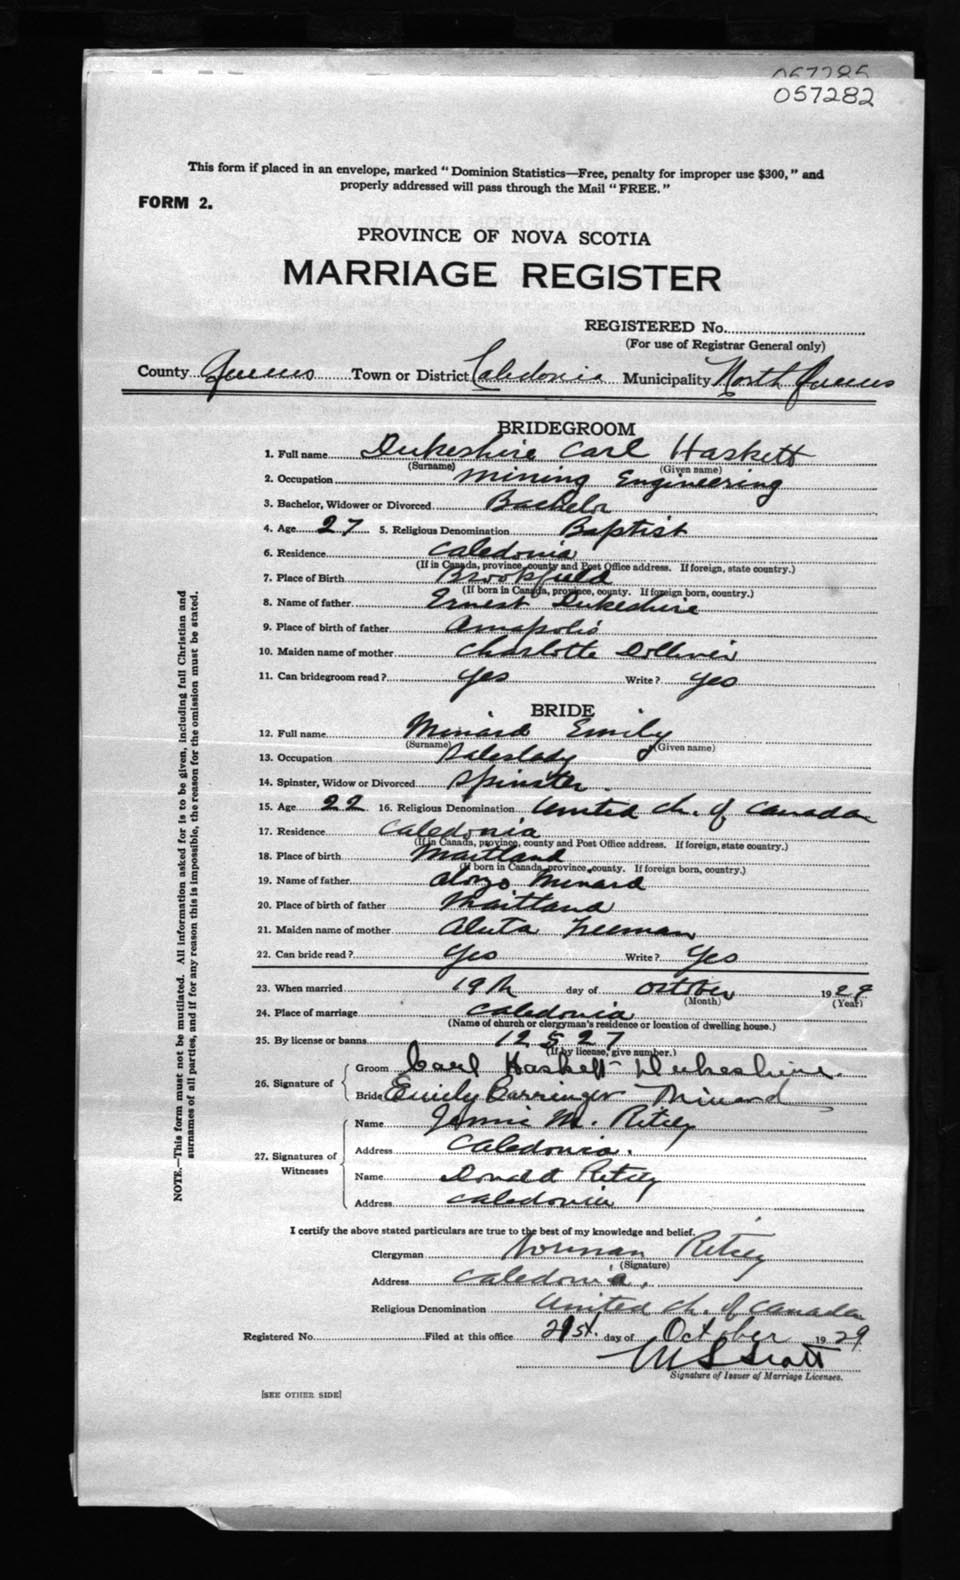 057285
057282
This form if placed in an envelope, marked "Dominion Statistics—Free, penalty for improper use $300," and
properly addressed will pass through the Mail "FREE."
FORM 2.
PROVINCE OF NOVA SCOTIA
MARRIAGE REGISTER
REGISTERED No.
(For use of Registrar General only)
County Queens Town or District Caledonia Municipality North Queens
BRIDEGROOM
1. Full name Dukeshire Carl Haskett
(Surname) (Given name)
2. Occupation Mining Engineering
3. Bachelor, Widower or Divorced Bachelor
4. Age 27 5. Religious Denomination Baptist
6. Residence Caledonia
(If in Canada, province, county and Post Office address. If foreign, state country.)
7. Place of Birth Brookfield
(If born in Canada, province, county. If foreign born, country.)
8. Name of father Ernest Dukeshire
9. Place of birth of father Annapolis
10. Maiden name of mother Charlotte Dolliver
11. Can bridegroom read? Yes Write? Yes
BRIDE
12. Full name Minard Emily
(Surname) (Given name)
13. Occupation Saleslady
14. Spinster, Widow or Divorced Spinster.
15. Age 22 16. Religious Denomination United Ch. of Canada
17. Residence Caledonia
(If in Canada, province, county and Post Office address. If foreign, state country.)
18. Place of birth Maitland
(If born in Canada, province, county. If foreign born, country.)
19. Name of father Alonzo Minard
20. Place of birth of father Maitland
21. Maiden name of mother Freeman
22. Can bride read? Yes Write? Yes
23. When married 19th day of October 1929
(Month) (Year)
24. Place of marriage Caledonia
(Name of church or clergyman's residence or location of dwelling house.)
25. By license or banns 12527
(If by license, give number.)
26. Signature of Groom Carl Haskett Dukeshire.
Bride Emily Barringer Minard
27. Signatures of Witnesses Name Jennie M. Ritcey
Address Caledonia.
Name Donald Ritcey
Address Caledonia
I certify the above stated particulars are true to the best of my knowledge and belief.
Clergyman Norman Ritcey
(Signature)
Address Caledonia.
Religious Denomination United Ch. of Canada
Registered No. Filed at this office 21st. day of October 1929
Signature of Issuer of Marriage Licenses.
[SEE OTHER SIDE]
NOTE.—This form must not be mutilated. All information asked for is to be given, including full Christian and
surnames of all parties, and if for any reason this is impossible, the reason for the omission must be stated.